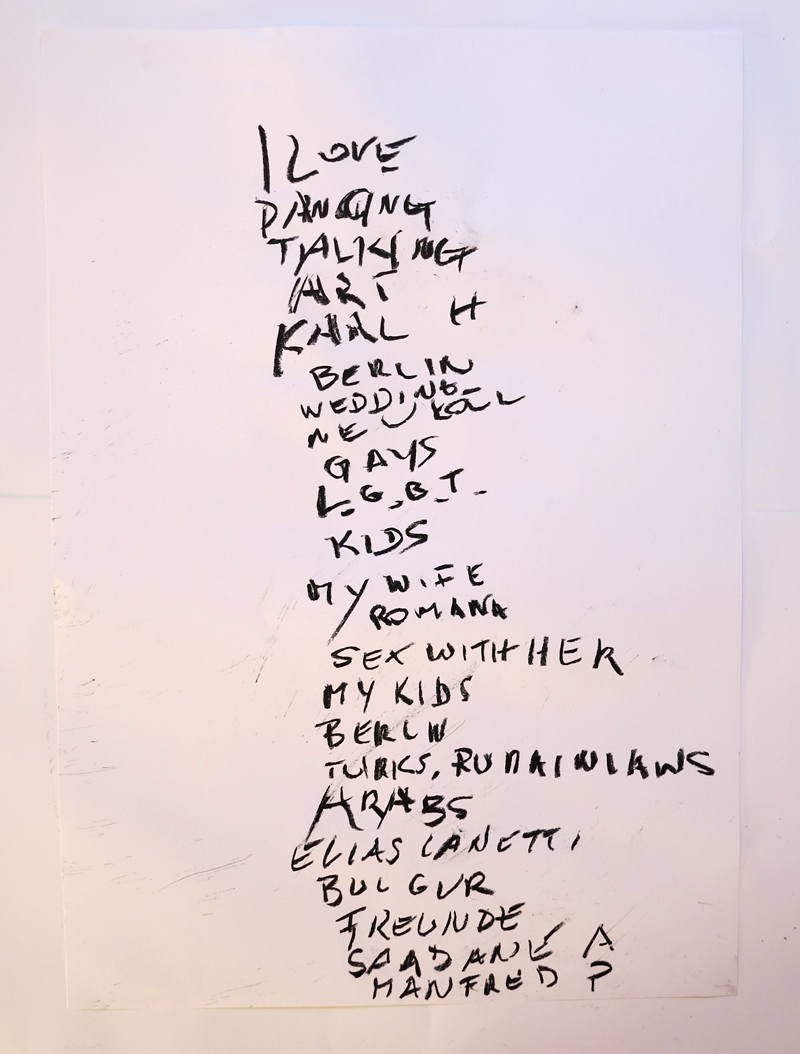 I LOVE
DANCING
TALKING
ART
KARL H
BERLIN
WEDDING
NEUKÖLL
GAYS
L.G.B.T.
KIDS
MY WIFE
ROMANA
SEX WITH HER
MY KIDS
BERLIN
TURKS,
ARABS
ELIAS CANETTI
BULGUR
FREUNDE
SAADANE A
MANFRED P